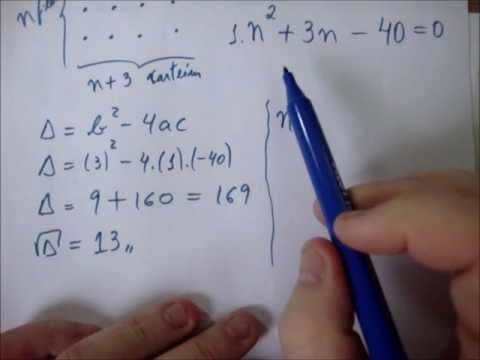 n
. . . .
. . . .
n + 3 carteiras
1.n² + 3n - 40 = 0
Δ = b² - 4ac
Δ = (3)² - 4.(1).(-40)
Δ = 9 + 160 = 169
√Δ = 13,,
n